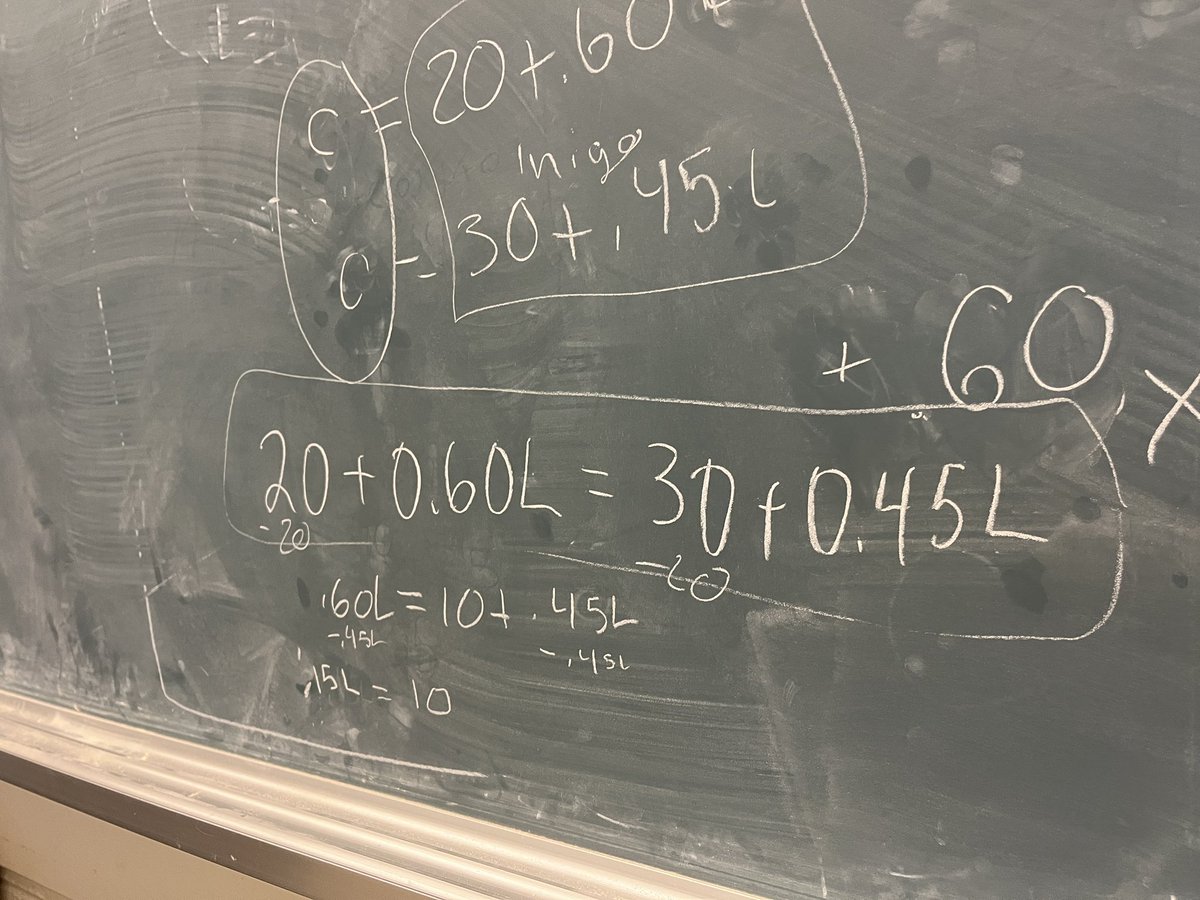 C = 20+.60
Inigo
C = 30+.45L
+ 60 x
20+0.60L = 30+0.45L
-20 -20
.60L = 10+.45L
-.45L -.45L
.15L = 10